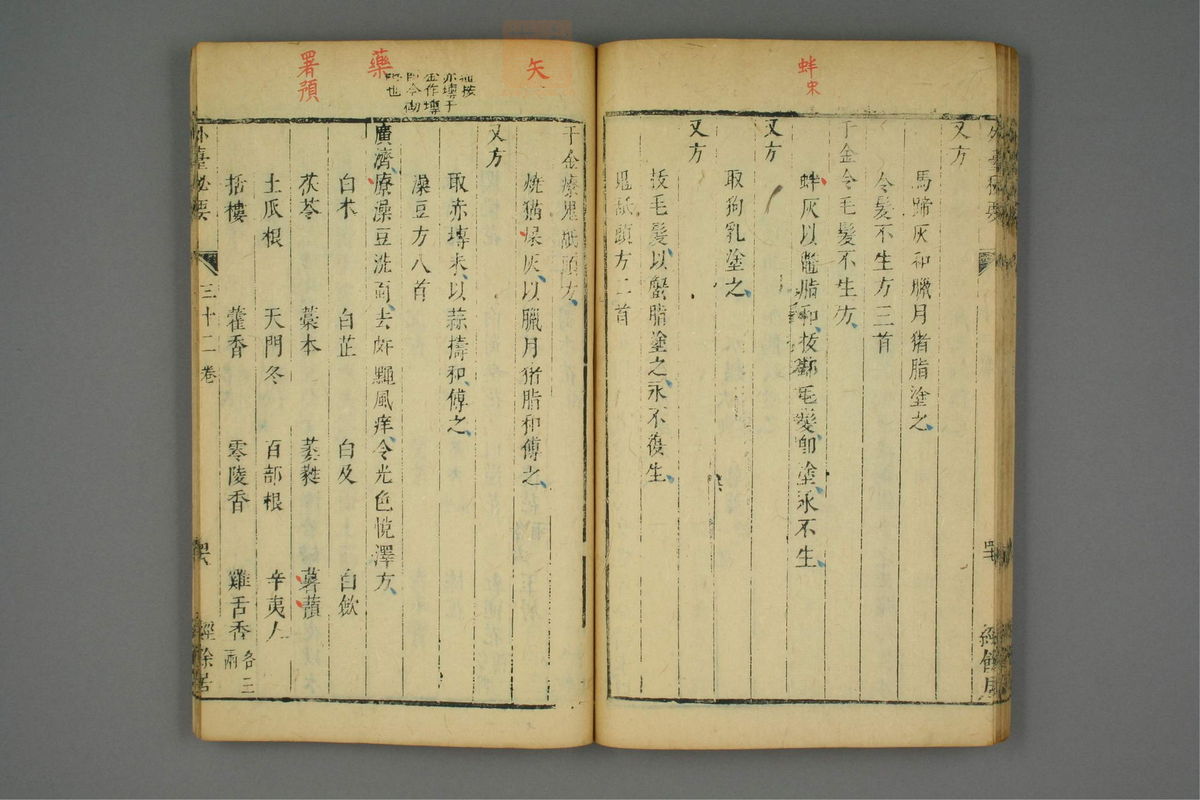 蚌宋
又方
馬蹄灰和臘月猪脂塗之
令髮不生方三首
千金令毛髮不生方
蚌灰以鱉脂和拔却毛髮即塗永不生
又方
取狗乳塗之
又方
拔毛髮以蟹脂塗之永不復生
鬼舐頭方二首
經餘居
矢
藥
署預
千金療鬼舐頭方
燒猫屎灰以臘月猪脂和傅之
又方
取赤塼末以蒜擣和傅之
澡豆方八首
廣濟療澡豆洗面去皯䵳風痒令光色悅澤方
白术 白芷 白及 白歛
茯苓 藁本 萎蕤 薯蕷
土瓜根 天門冬 百部根 辛夷人
栝樓 藿香 零陵香 雞舌香各三兩
外臺秘要 三十二卷 經餘居